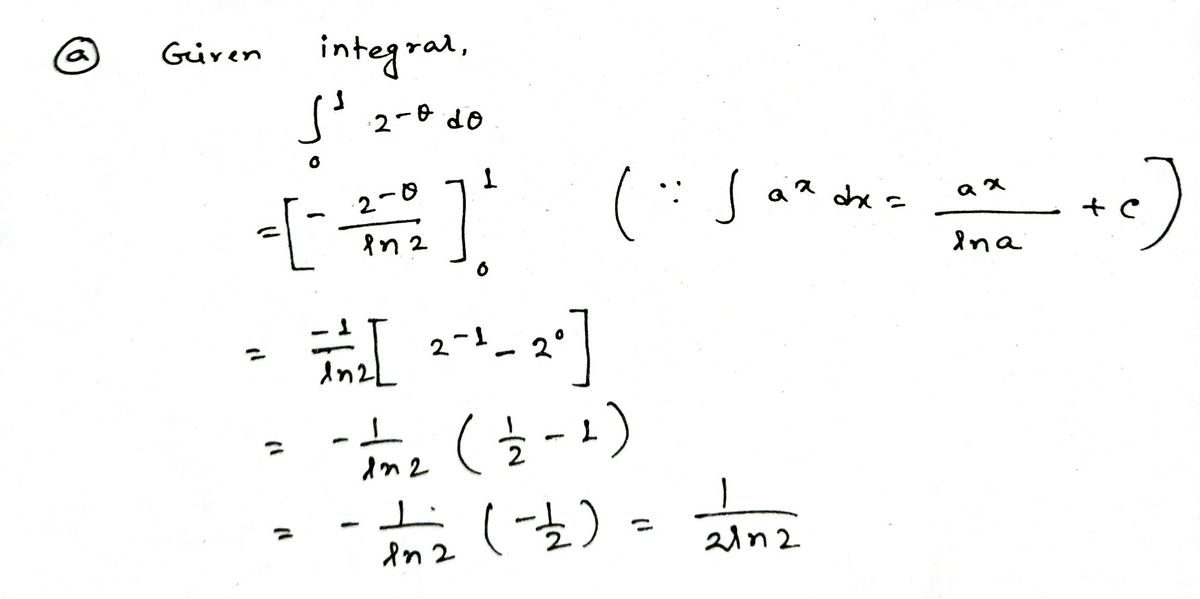 (a) Given integral,
∫₀¹ 2^{-θ} dθ
= [ - 2^{-θ} / ln 2 ]₀¹ ( ∵ ∫ a^x dx = a^x / ln a + c )
= -1/ln 2 [ 2^{-1} - 2^0 ]
= - 1/ln 2 ( 1/2 - 1 )
= - 1/ln 2 ( -1/2 ) = 1 / 2 ln 2